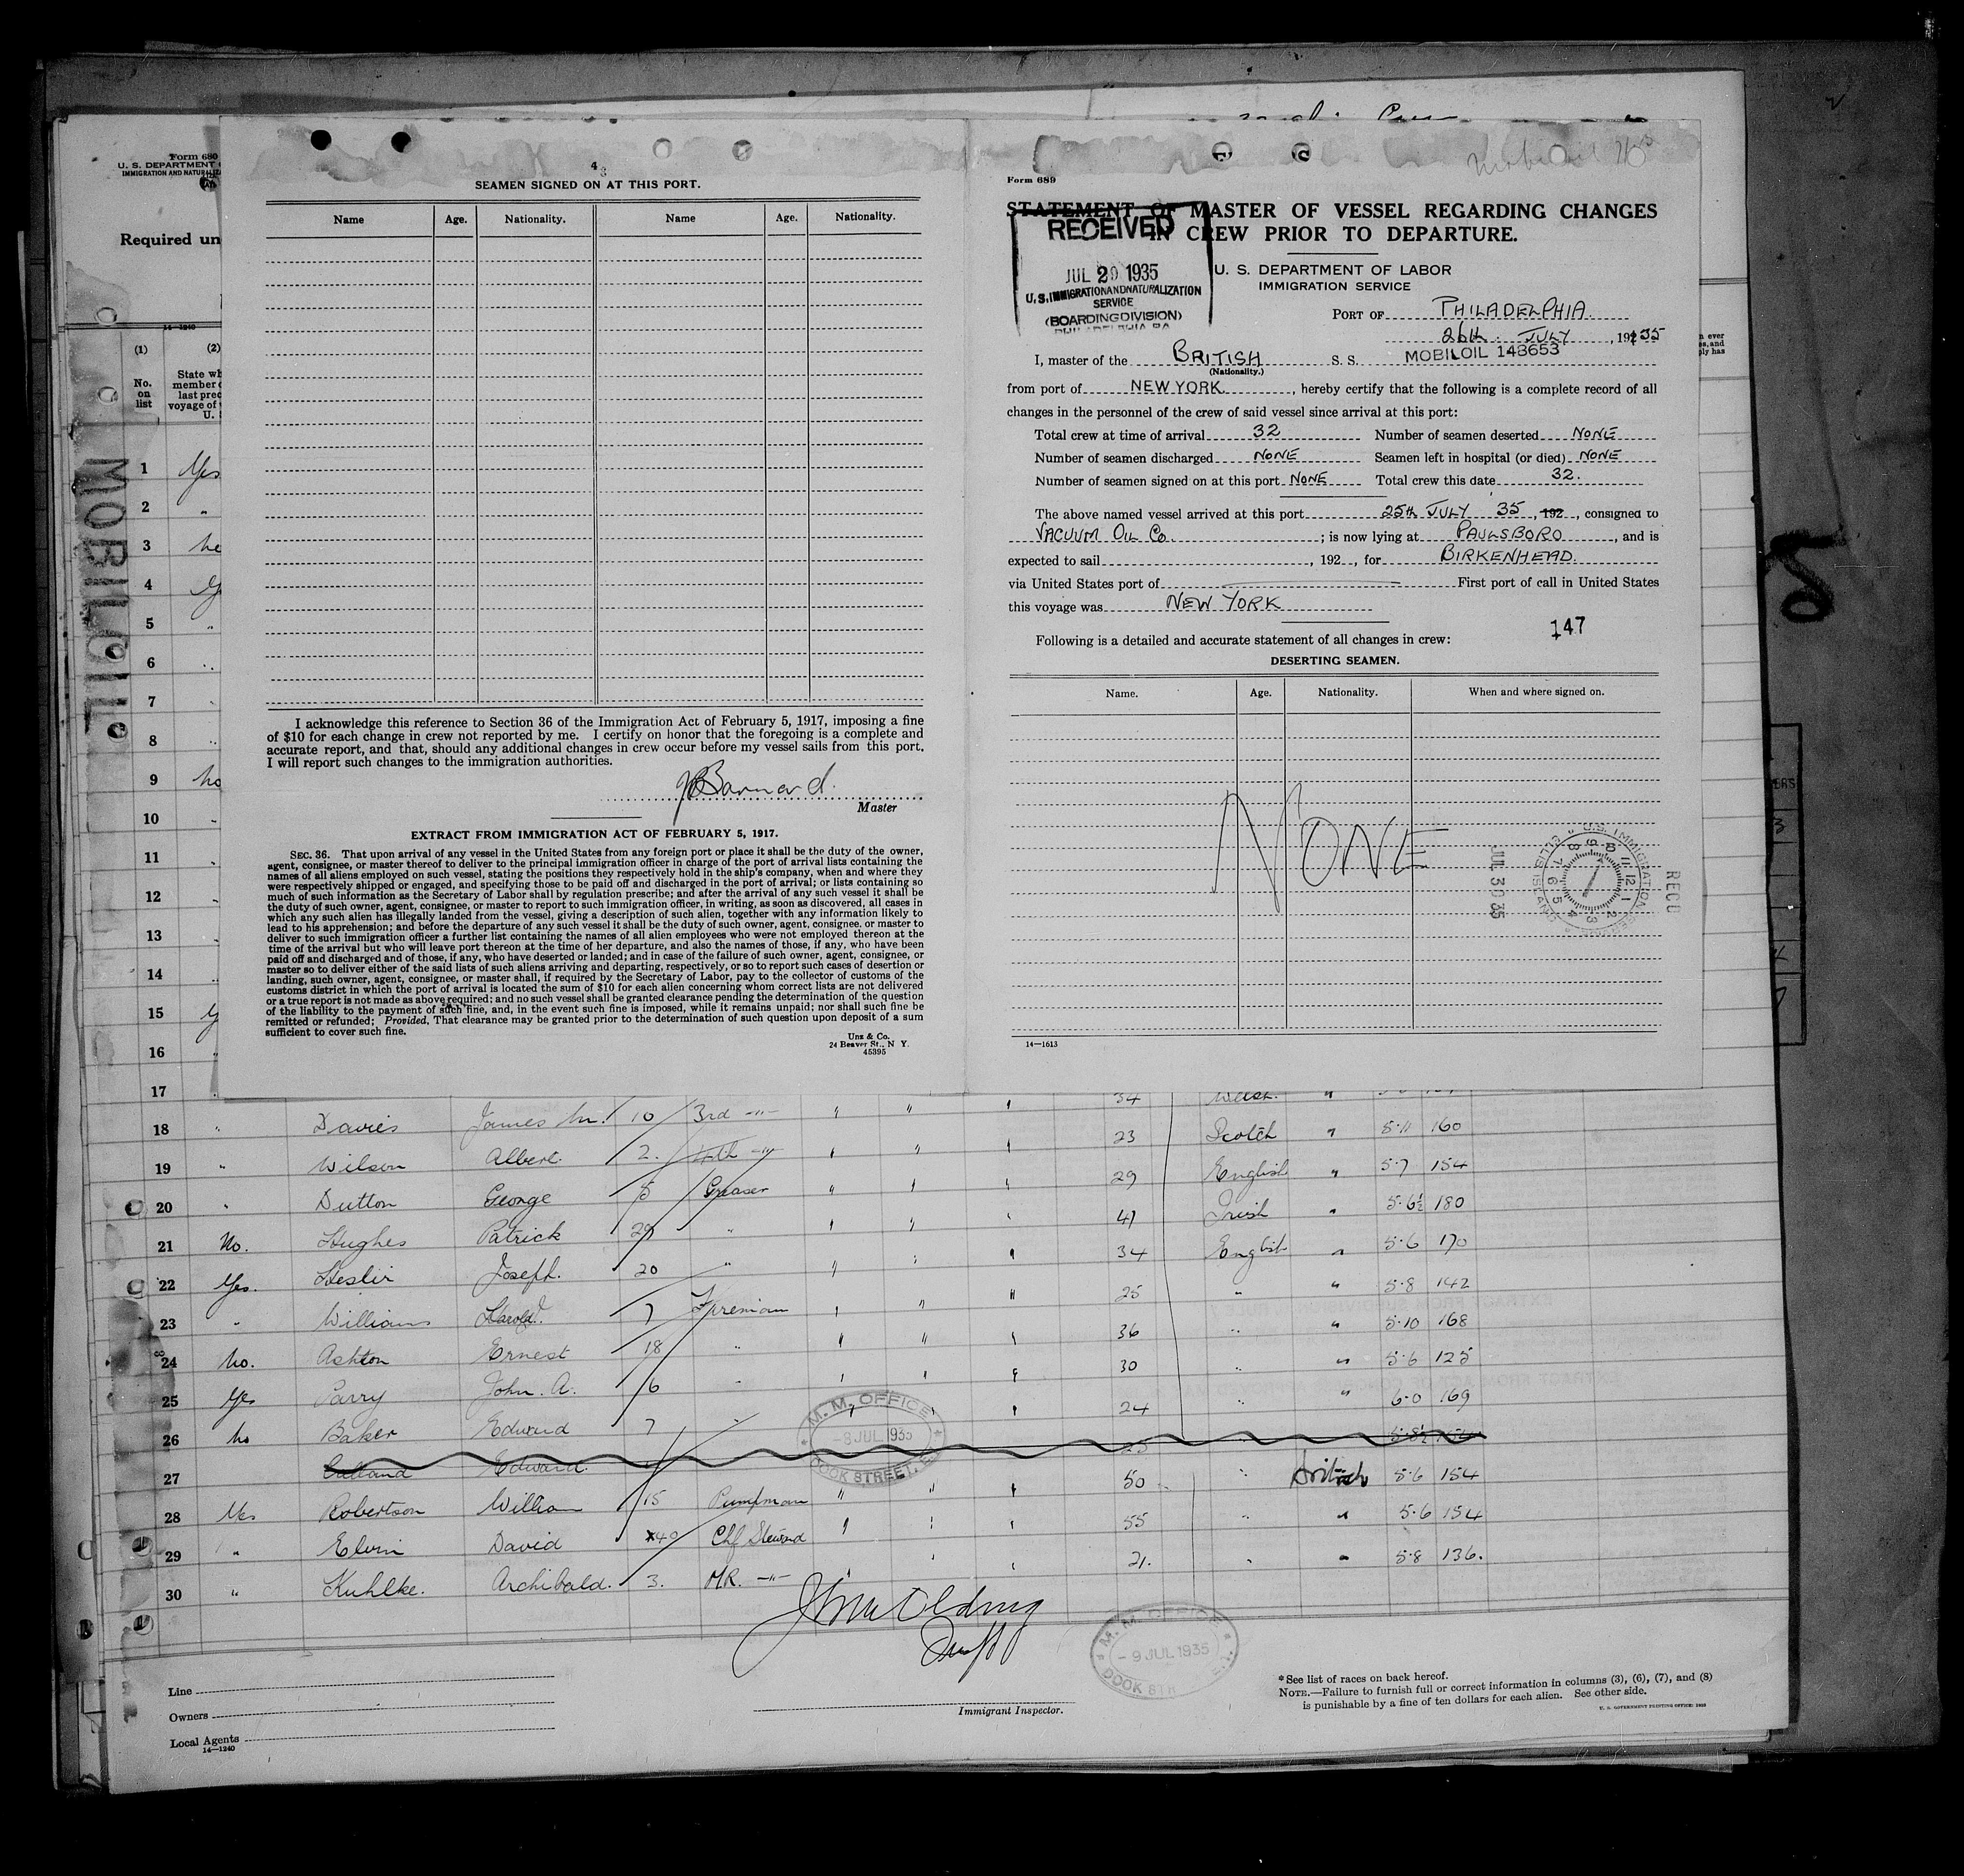 Form 680
U. S. DEPARTMENT
IMMIGRATION AND NATURALIZA
Required un
14—1240
(1)
No.
on
list
(2)
State wh
member
last prec
voyage of
U. S
MOBILOIL
1 Yes
2 "
3 No
4 Y
5 "
6 "
7
8 "
9 No
10
11
12
13
14
15 Y
16
17
4
3
SEAMEN SIGNED ON AT THIS PORT.
Name Age. Nationality. Name Age. Nationality.
I acknowledge this reference to Section 36 of the Immigration Act of February 5, 1917, imposing a fine
of $10 for each change in crew not reported by me. I certify on honor that the foregoing is a complete and
accurate report, and that, should any additional changes in crew occur before my vessel sails from this port,
I will report such changes to the immigration authorities.
Barnard.
Master
EXTRACT FROM IMMIGRATION ACT OF FEBRUARY 5, 1917.
SEC. 36. That upon arrival of any vessel in the United States from any foreign port or place it shall be the duty of the owner,
agent, consignee, or master thereof to deliver to the principal immigration officer in charge of the port of arrival lists containing the
names of all aliens employed on such vessel, stating the positions they respectively hold in the ship's company, when and where they
were respectively shipped or engaged, and specifying those to be paid off and discharged in the port of arrival; or lists containing so
much of such information as the Secretary of Labor shall by regulation prescribe; and after the arrival of any such vessel it shall be
the duty of such owner, agent, consignee, or master to report to such immigration officer, in writing, as soon as discovered, all cases in
which any such alien has illegally landed from the vessel, giving a description of such alien, together with any information likely to
lead to his apprehension; and before the departure of any such vessel it shall be the duty of such owner, agent, consignee, or master to
deliver to such immigration officer a further list containing the names of all alien employees who were not employed thereon at the
time of the arrival but who will leave port thereon at the time of her departure, and also the names of those, if any, who have been
paid off and discharged and of those, if any, who have deserted or landed; and in case of the failure of such owner, agent, consignee, or
master so to deliver either of the said lists of such aliens arriving and departing, respectively, or so to report such cases of desertion or
landing, such owner, agent, consignee, or master shall, if required by the Secretary of Labor, pay to the collector of customs of the
customs district in which the port of arrival is located the sum of $10 for each alien concerning whom correct lists are not delivered
or a true report is not made as above required; and no such vessel shall be granted clearance pending the determination of the question
of the liability to the payment of such fine, and, in the event such fine is imposed, while it remains unpaid; nor shall such fine be
remitted or refunded; Provided, That clearance may be granted prior to the determination of such question upon deposit of a sum
sufficient to cover such fine.
Unz & Co.
24 Beaver St., N Y.
45395
Form 689
STATEMENT OF MASTER OF VESSEL REGARDING CHANGES
IN CREW PRIOR TO DEPARTURE.
RECEIVED
JUL 29 1935
U. S. IMMIGRATION AND NATURALIZATION
SERVICE
(BOARDING DIVISION)
PHILADELPHIA PA
U. S. DEPARTMENT OF LABOR
IMMIGRATION SERVICE
PORT OF PHILADELPHIA.
26th JULY, 1935
I, master of the BRITISH S. S. MOBILOIL 148653
(Nationality.)
from port of NEW YORK, hereby certify that the following is a complete record of all
changes in the personnel of the crew of said vessel since arrival at this port:
Total crew at time of arrival 32 Number of seamen deserted NONE
Number of seamen discharged NONE Seamen left in hospital (or died) NONE
Number of seamen signed on at this port NONE Total crew this date 32.
The above named vessel arrived at this port 25th JULY 35, 192 , consigned to
VACUUM OIL Co. ; is now lying at PAULSBORO, and is
expected to sail , 192 , for BIRKENHEAD.
via United States port of First port of call in United States
this voyage was NEW YORK
147
Following is a detailed and accurate statement of all changes in crew:
DESERTING SEAMEN.
Name. Age. Nationality. When and where signed on.
NONE
RECD
JUL 30 35
U.S. IMMIGRATION SERVICE ELLIS ISLAND
14—1613
34 Welsh "
18 " Davies James M. 10 3rd -"- " " " 23 Scotch " 5·11 160
19 " Wilson Albert. 2. 4th -"- " " " 29 English " 5·7 154
20 " Dutton George 5 Greaser " " " 41 Irish " 5·6½ 180
21 No. Hughes Patrick 29 " " " " 34 English " 5·6 170
22 Yes. Heslir Joseph. 20 " " " " 25 " " 5·8 142
23 " Williams Harold. 7 Fireman " " " 36 " " 5·10 168
24 No. Ashton Ernest 18 " " " " 30 " " 5·6 125
25 Yes Parry John. A. 6 " " " " 24 " " 6·0 169
26 No Baker Edward 7 " " " " 25
27 Calland Edward. 50 " British 5·6 154
28 Yes Robertson William 15 Pumpman " " " 55 " " 5·6 154
29 " Elvin David 40 Chf Steward " " " 21. " " 5·8 136.
30 " Kuhlke. Archibald. 3. M.R. -"-
M. M. OFFICE
-8 JUL 1935
DOCK STREET, E.
M. M. OFFICE
-9 JUL 1935
DOCK STR E.1.
Line
Owners
Local Agents
14—1240
Immigrant Inspector.
*See list of races on back hereof.
NOTE.—Failure to furnish full or correct information in columns (3), (6), (7), and (8)
is punishable by a fine of ten dollars for each alien. See other side.
U. S. GOVERNMENT PRINTING OFFICE: